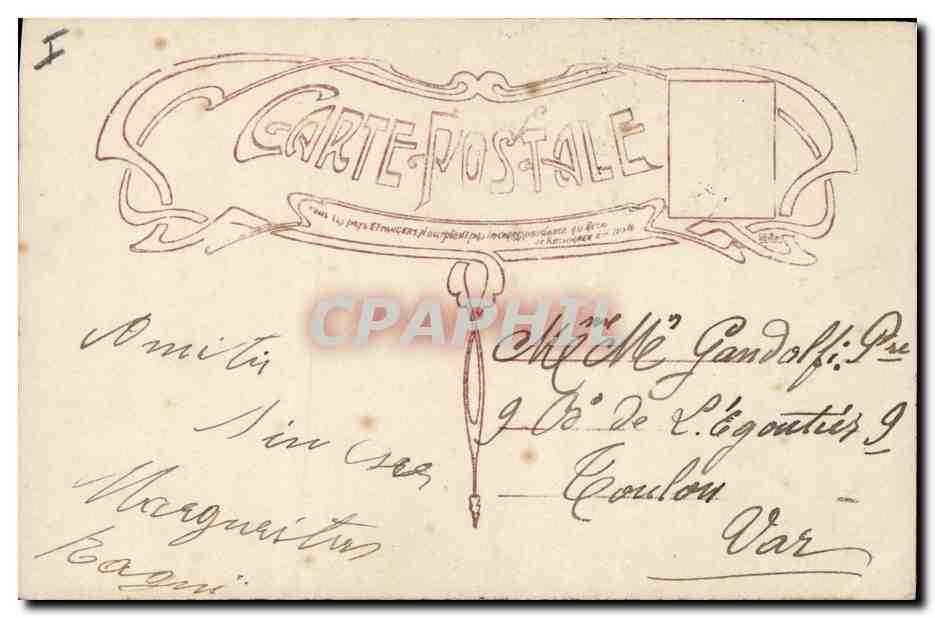 I
CARTE POSTALE
Tous les pays Etrangers n'acceptent pas la correspondance au Recto
se Renseigner à la Poste
CPAPHIL
Amitiés
Sincères
Marguerites
Ragni
Mme Mn Gandolfi. Pre
9 Bd de L'Egoutier 9
Toulon
Var